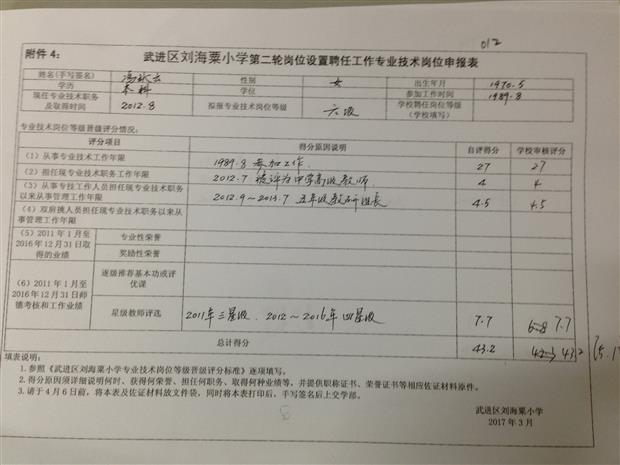 012
附件4: 武进区刘海粟小学第二轮岗位设置聘任工作专业技术岗位申报表
姓名(手写签名) 性别 女 出生年月 1970.5
学历 本科 学位 参加工作时间 1989.8
现任专业技术职务及取得时间 2012.8 拟报专业技术岗位等级 六级 学校聘任岗位等级(学校填写)
专业技术岗位等级晋级评分情况:
评分项目 得分原因说明 自评得分 学校审核评分
(1)从事专业技术工作年限 1989.8 参加工作. 27 27
(2)担任现专业技术职务年限 2012.7 被评为中学高级教师 4 4
(3)从事专技工作人员担任现专业技术职务以来从事管理工作年限 2012.9～2013.7 五年级教研组长 4.5 4.5
(4)双肩挑人员担任现专业技术职务以来从事管理工作年限
(5)2011年1月至2016年12月31日取得的业绩 专业性荣誉
奖励性荣誉
(6)2011年1月至2016年12月31日师德考核和工作业绩 逐级推荐基本功或评优课
星级教师评选 2011年三星级、2012～2016年四星级 7.7 6.8 7.7
总计得分 43.2 43.2
填表说明:
1.参照《武进区刘海粟小学专业技术岗位等级晋级评分标准》逐项填写。
2.得分原因须详细说明何时、获得何荣誉、担任何职务、取得何种业绩等,并提供职称证书、荣誉证书等相应佐证材料原件。
3.请于4月6日前,将本表及佐证材料放文件袋,同时将本表打印后,手写签名后上交学部。
武进区刘海粟小学
2017年3月